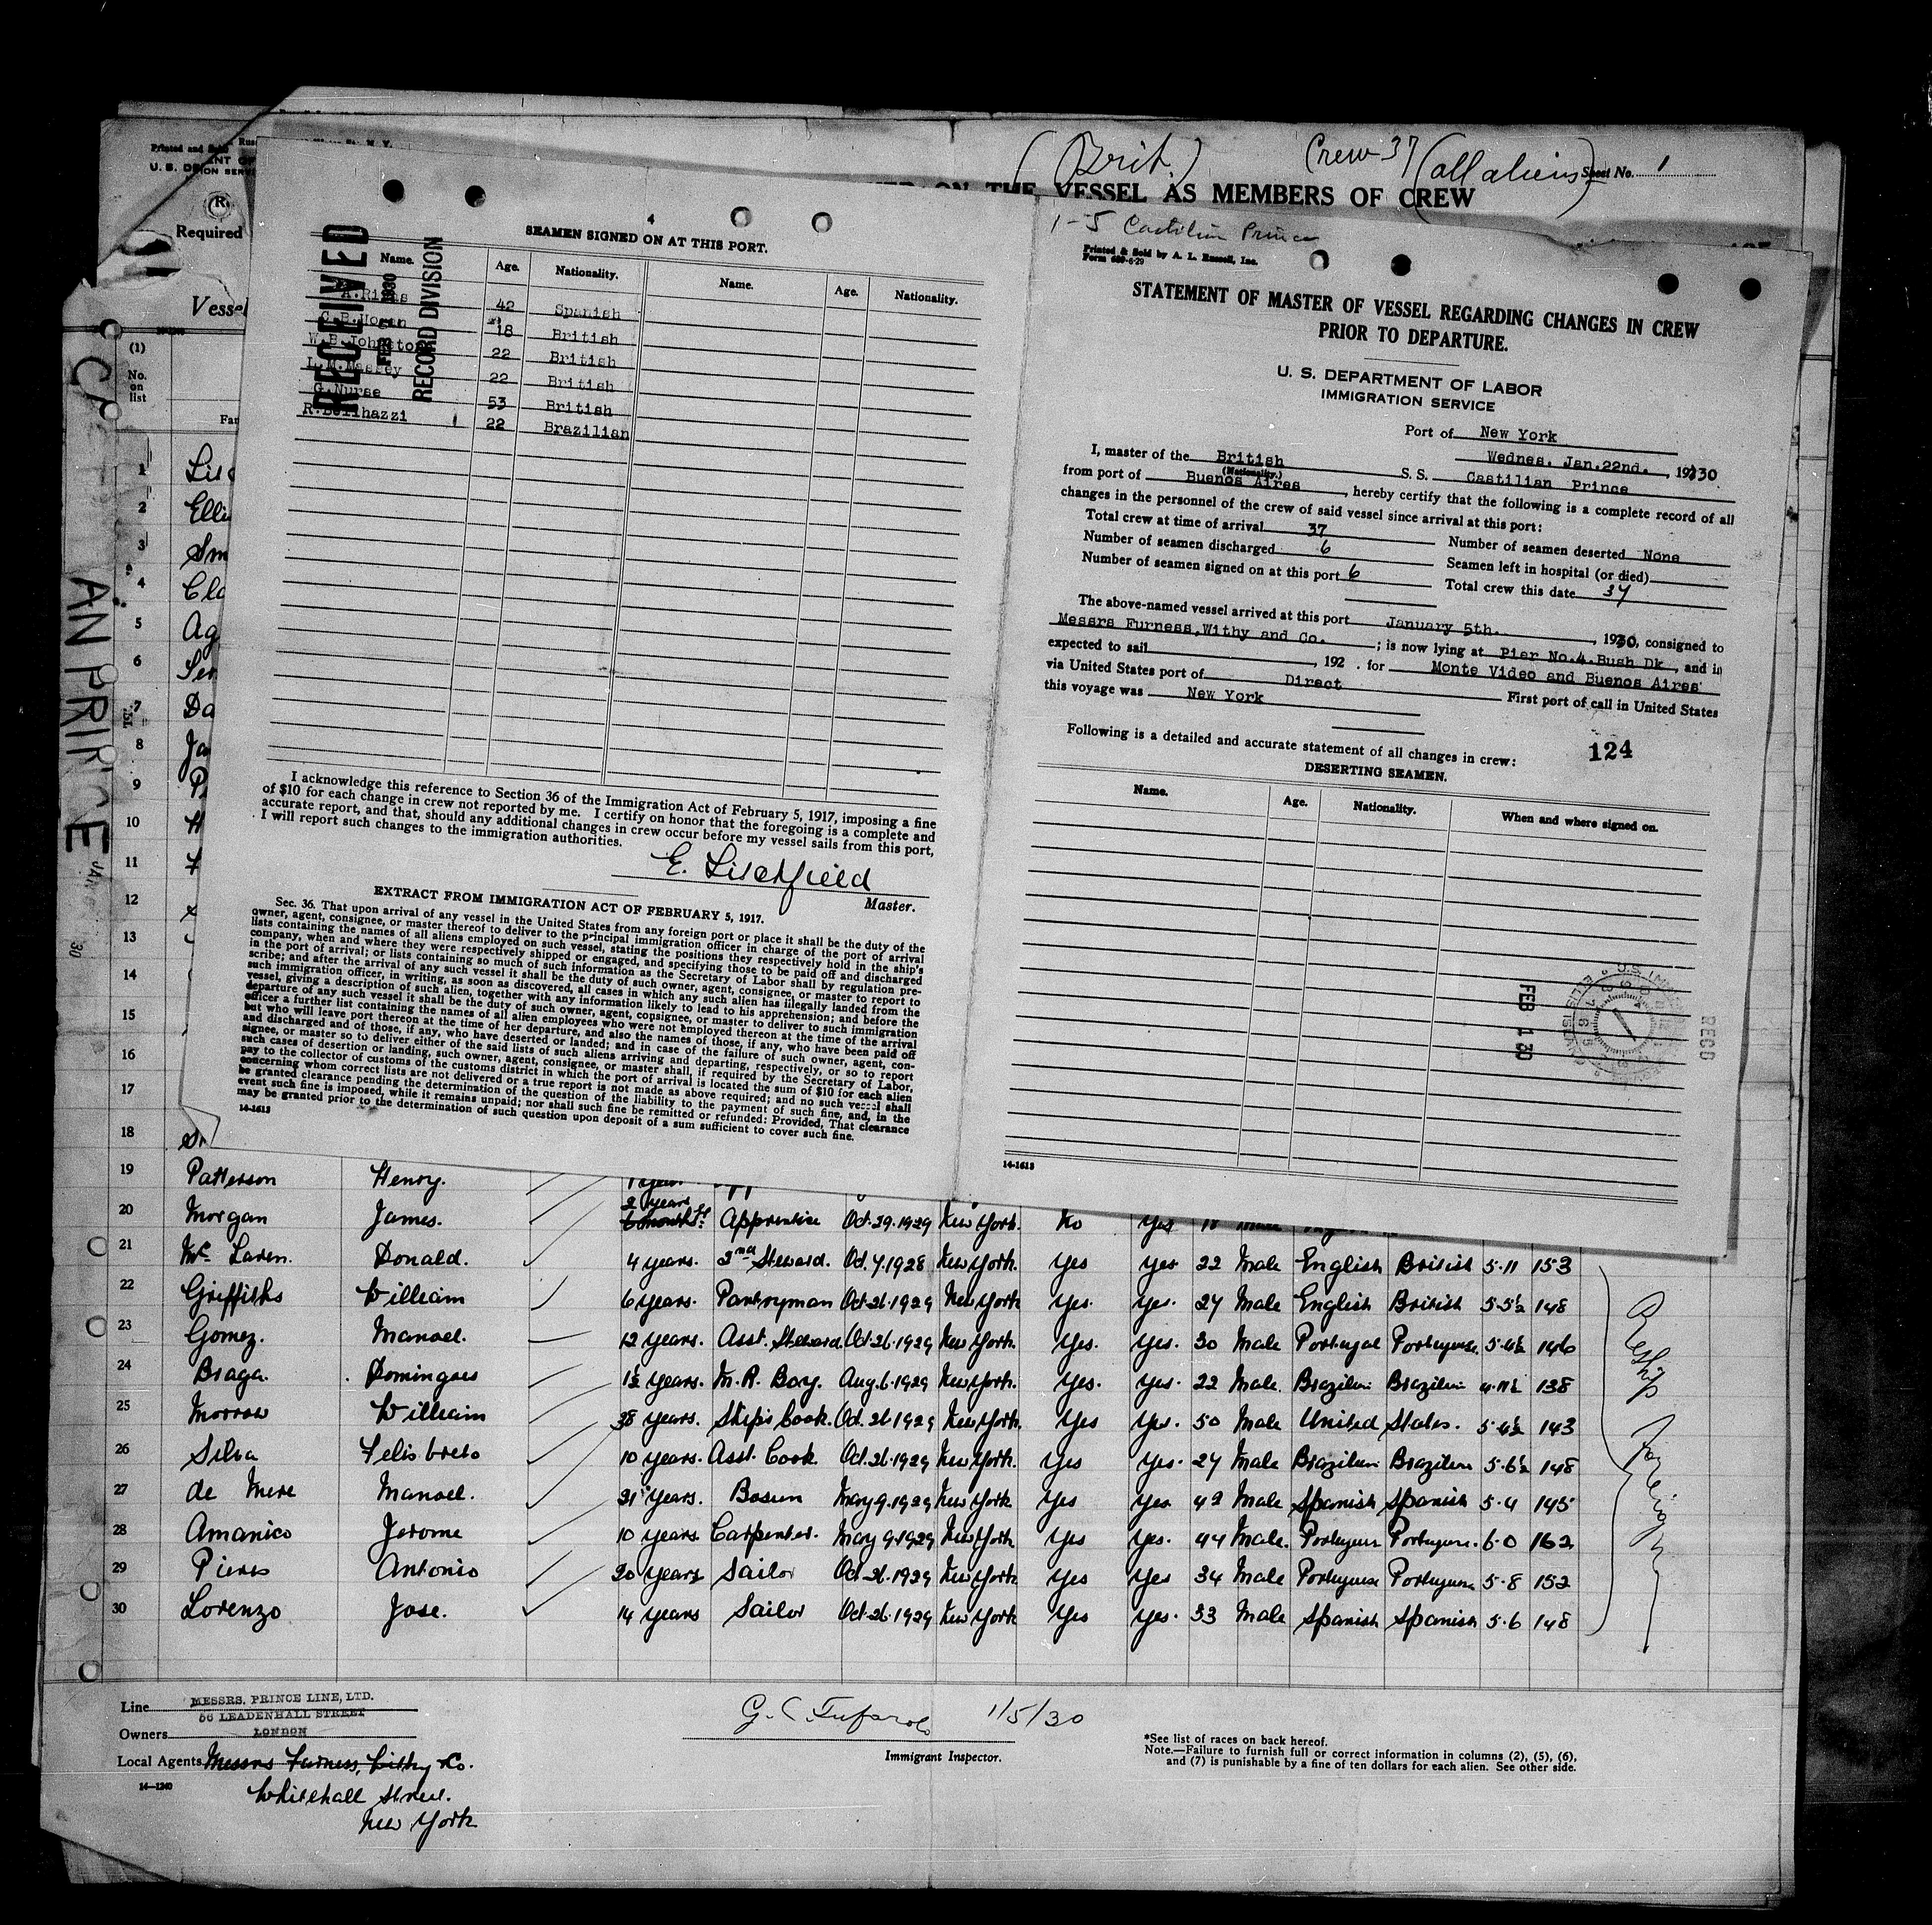 (Brit.) Crew 37 (all aliens) Sheet No. 1
ON THE VESSEL AS MEMBERS OF CREW
Printed and Sold
U. S. D
ION SERV
Required
Vessel
(1)
No.
on
list
CA
AN PRINCE
RECEIVED
FEB 1930
RECORD DIVISION
4
SEAMEN SIGNED ON AT THIS PORT.
Name. Age. Nationality. Name. Age. Nationality.
A.Rimas 42 Spanish
C.B.Hogan 18 British
W.B.Johnston 22 British
L.M.Massey 22 British
G.Nurse 53 British
22 Brazilian
I acknowledge this reference to Section 36 of the Immigration Act of February 5, 1917, imposing a fine
of $10 for each change in crew not reported by me. I certify on honor that the foregoing is a complete and
accurate report, and that, should any additional changes in crew occur before my vessel sails from this port,
I will report such changes to the immigration authorities.
E. Litchfield
Master.
EXTRACT FROM IMMIGRATION ACT OF FEBRUARY 5, 1917.
Sec. 36. That upon arrival of any vessel in the United States from any foreign port or place it shall be the duty of the
owner, agent, consignee, or master thereof to deliver to the principal immigration officer in charge of the port of arrival
lists containing the names of all aliens employed on such vessel, stating the positions they respectively hold in the ship's
company, when and where they were respectively shipped or engaged, and specifying those to be paid off and discharged
in the port of arrival; or lists containing so much of such information as the Secretary of Labor shall by regulation pre-
scribe; and after the arrival of any such vessel it shall be the duty of such owner, agent, consignee, or master to report to
such immigration officer, in writing, as soon as discovered, all cases in which any such alien has illegally landed from the
vessel, giving a description of such alien, together with any information likely to lead to his apprehension; and before the
departure of any such vessel it shall be the duty of such owner, agent, consignee, or master to deliver to such immigration
officer a further list containing the names of all alien employees who were not employed thereon at the time of the arrival
but who will leave port thereon at the time of her departure, and also the names of those, if any, who have been paid off
and discharged and of those, if any, who have deserted or landed; and in case of the failure of such owner, agent, con-
signee, or master so to deliver either of the said lists of such aliens arriving and departing, respectively, or so to report
such cases of desertion or landing, such owner, agent, consignee, or master shall, if required by the Secretary of Labor,
pay to the collector of customs of the customs district in which the port of arrival is located the sum of $10 for each alien
concerning whom correct lists are not delivered or a true report is not made as above required; and no such vessel shall
be granted clearance pending the determination of the question of the liability to the payment of such fine, and, in the
event such fine is imposed, while it remains unpaid; nor shall such fine be remitted or refunded: Provided, That clearance
may be granted prior to the determination of such question upon deposit of a sum sufficient to cover such fine.
14-1613
1-5 Castilian Prince
Printed & Sold by A. L. Russell, Inc.
Form 689-6-29
STATEMENT OF MASTER OF VESSEL REGARDING CHANGES IN CREW
PRIOR TO DEPARTURE.
U. S. DEPARTMENT OF LABOR
IMMIGRATION SERVICE
Port of New York
Wednes. Jan.22nd. , 1930
I, master of the British S. S. Castilian Prince
(Nationality.)
from port of Buenos Aires , hereby certify that the following is a complete record of all
changes in the personnel of the crew of said vessel since arrival at this port:
Total crew at time of arrival 37
Number of seamen discharged 6 Number of seamen deserted None
Number of seamen signed on at this port 6 Seamen left in hospital (or died)
Total crew this date 37
The above-named vessel arrived at this port January 5th. , 1930, consigned to
Messrs Furness,Withy and Co. ; is now lying at Pier No.4.Bush Dk , and is
expected to sail , 192 . for Monte Video and Buenos Aires
via United States port of Direct First port of call in United States
this voyage was New York
Following is a detailed and accurate statement of all changes in crew: 124
DESERTING SEAMEN.
Name. Age. Nationality. When and where signed on.
FEB 1 30
RECD
14-1613
1
2 Elli
3 Sm
4 Cla
5 Ag
6 Ser
7 Da
8 Ja
9 P
10 H
11
12
13
14
15
16
17
18
19 Patterson Henry. 1 year
20 Morgan James. 2 years 6 months Apprentice Oct.29.1929 New York. No Yes
21 Mc Laren. Donald. 4 years. 2nd Steward. Oct.7.1928 New York. Yes Yes 22 Male English British 5-11 153
22 Griffiths William 6 years. Pantryman Oct.26.1929 New York Yes. Yes. 27 Male English British 5-5½ 148
23 Gomez. Manoel. 12 years. Asst. Steward. Oct.26.1929 New York. Yes. Yes. 30 Male Portugal Portuguese. 5-4½ 146
24 Braga. Domingoes 1½ years. M.R. Boy. Aug.6.1929 New York. Yes. Yes. 22 Male. Brazilian Brazilian 4-11½ 138
25 Morrow William 38 years. Ship's Cook. Oct.26.1929 New York. Yes Yes. 50 Male United States. 5-4½ 143
26 Silva Felisberto 10 years. Asst. Cook. Oct.26.1929 New York. Yes Yes. 27 Male Brazilian Brazilian 5-6½ 148
27 de Mere Manoel. 21 years. Bosun May 9.1929 New York Yes Yes 42 Male Spanish Spanish 5-4 145
28 Amanico Jerome 10 years. Carpenter. May 9.1929 New York Yes Yes. 44 Male. Portuguese Portuguese. 6-0 162
29 Pieres Antonio 20 years Sailor Oct.26.1929 New York Yes Yes 34 Male Portuguese Portuguese 5-8 152
30 Lorenzo Jose. 14 years Sailor Oct.26.1929 New York Yes Yes. 33 Male Spanish Spanish 5-6 148
Reship Foreign
Line MESSRS. PRINCE LINE, LTD.
56 LEADENHALL STREET
Owners LONDON
Local Agents Messrs Furness, Withy & Co.
14-1240
Whitehall Street.
New York
1/5/30
Immigrant Inspector.
*See list of races on back hereof.
Note.—Failure to furnish full or correct information in columns (2), (5), (6),
and (7) is punishable by a fine of ten dollars for each alien. See other side.